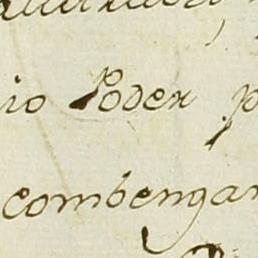 io Poder p
combengan